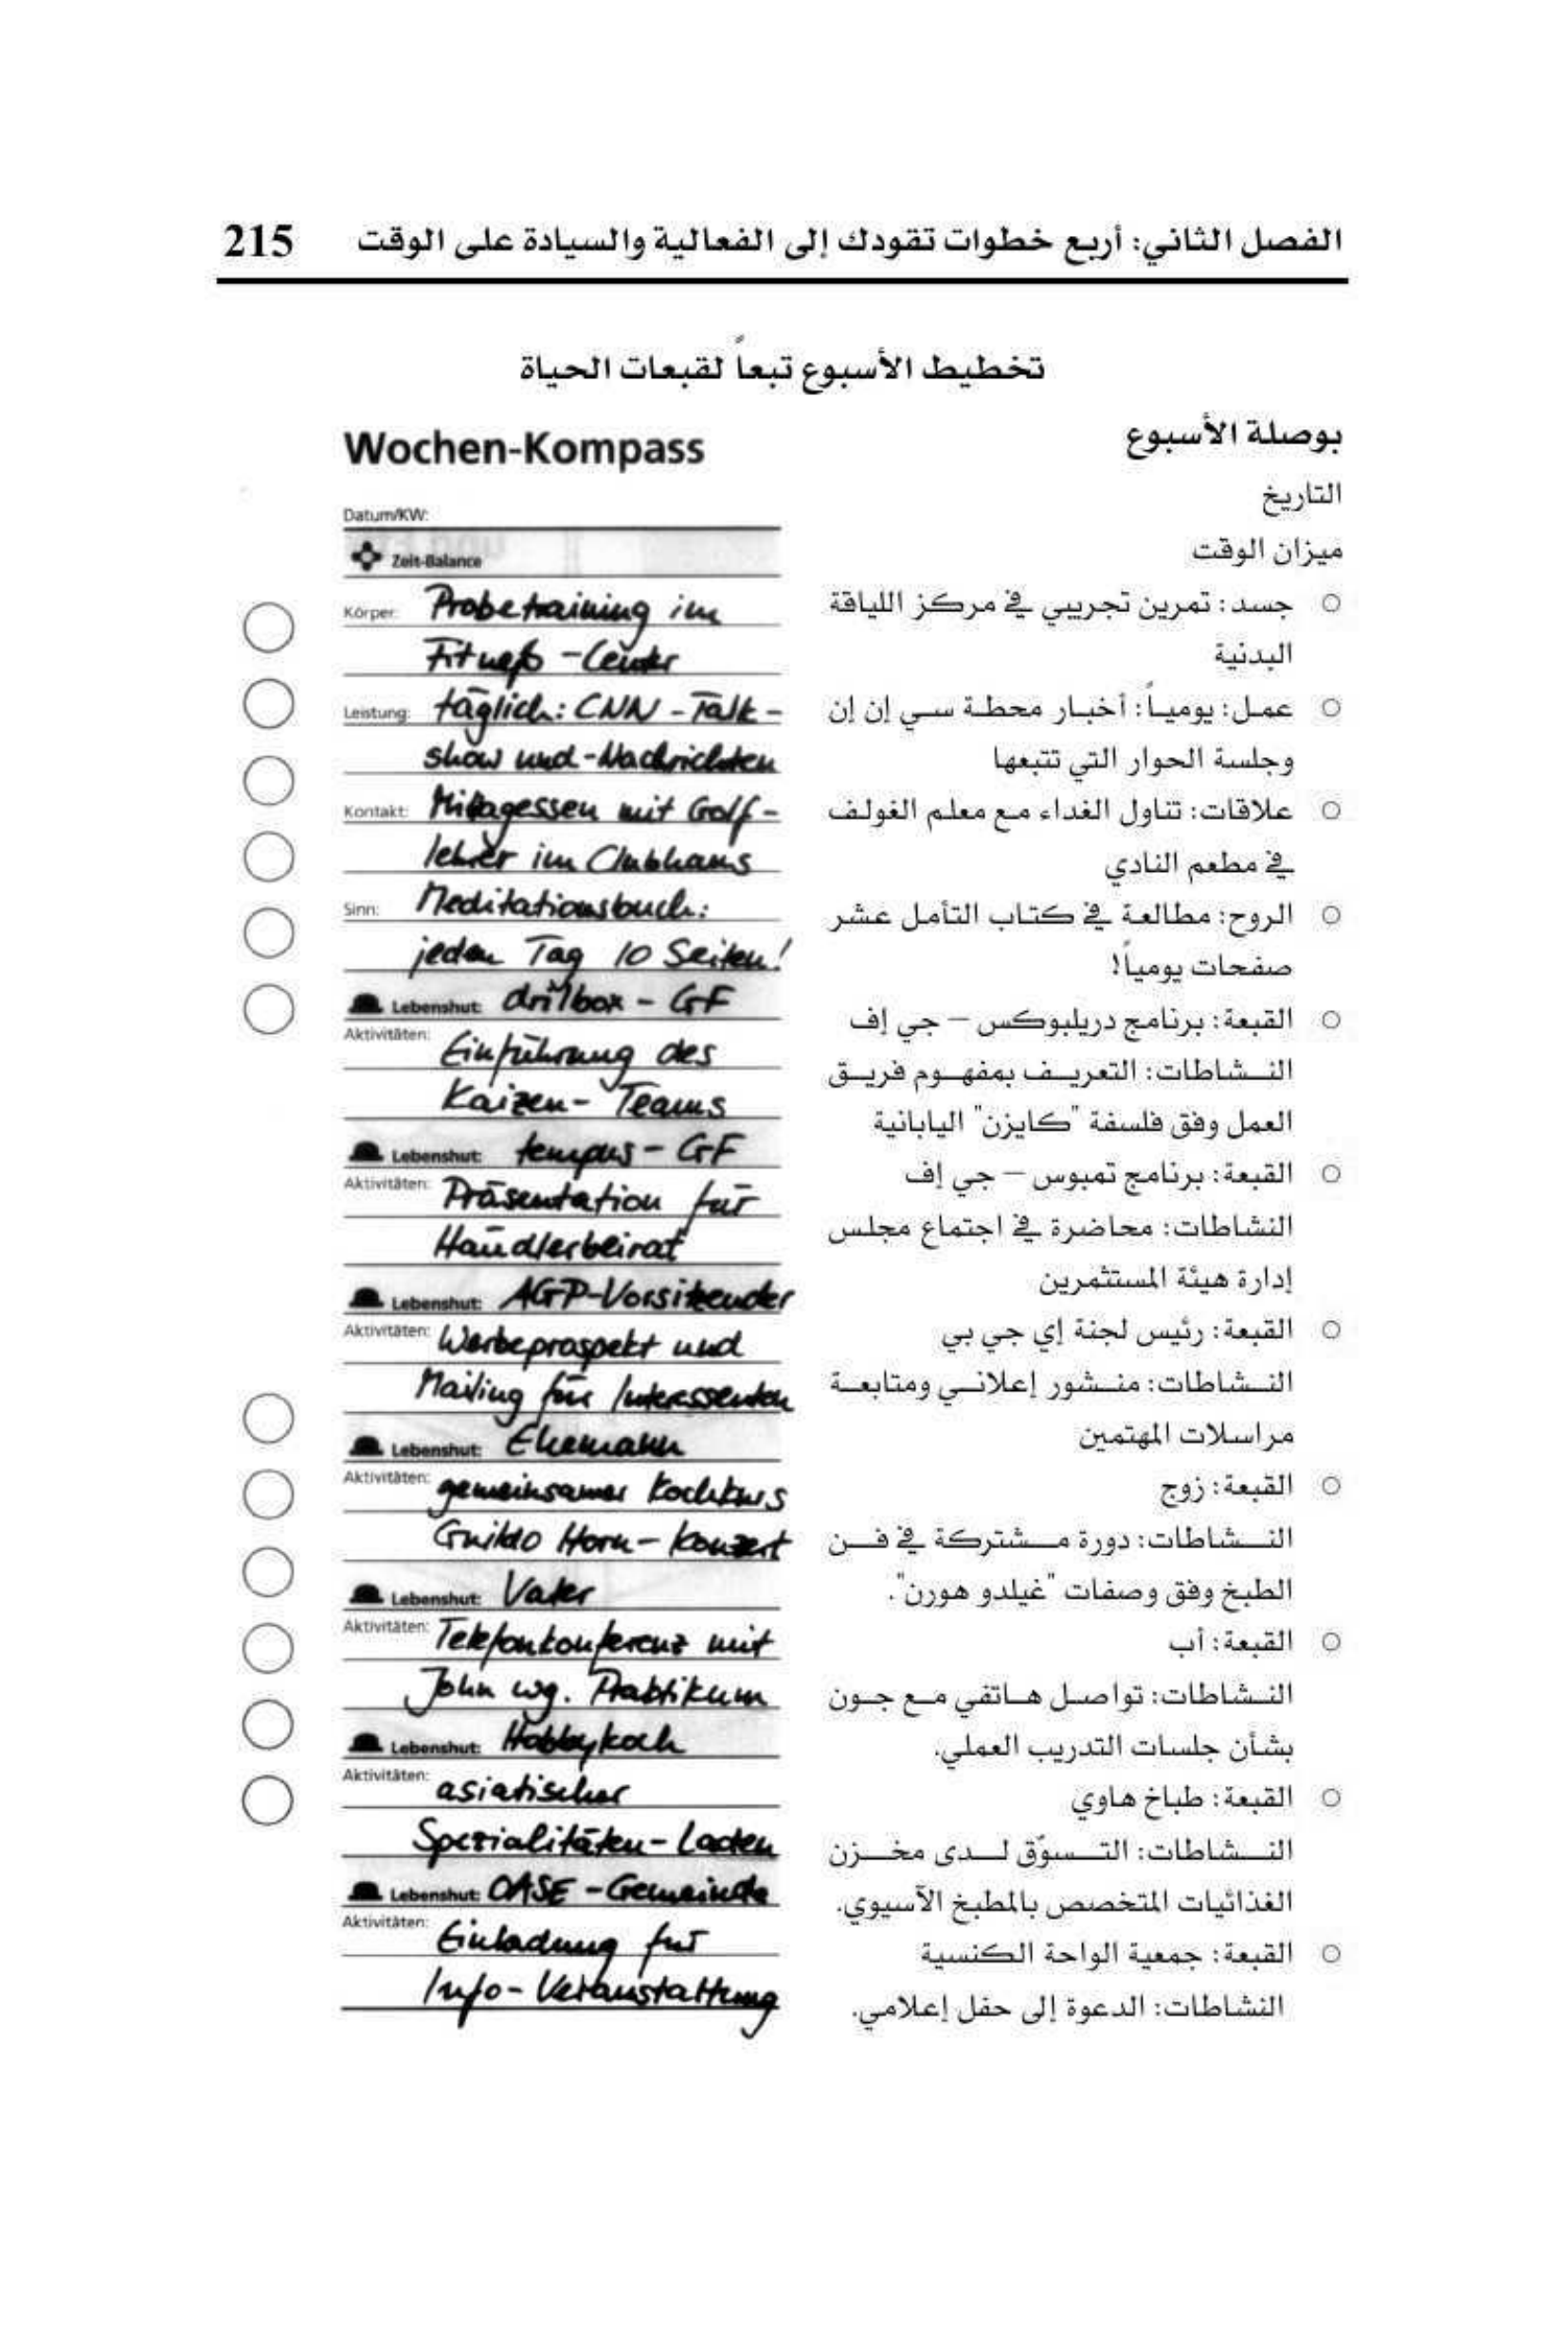 الفصل الثاني: أربع خطوات تقودك إلى الفعالية والسيادة على الوقت 215
تخطيط الأسبوع تبعاً لقبعات الحياة
بوصلة الأسبوع
التاريخ
ميزان الوقت
○ جسد: تمرين تجريبي في مركز اللياقة
البدنية
○ عمل: يومياً: أخبار محطة سي إن إن
وجلسة الحوار التي تتبعها
○ علاقات: تناول الغداء مع معلم الغولف
في مطعم النادي
○ الروح: مطالعة في كتاب التأمل عشر
صفحات يومياً!
○ القبعة: برنامج دريلبوكس – جي إف
النشاطات: التعريف بمفهوم فريق
العمل وفق فلسفة "كايزن" اليابانية
○ القبعة: برنامج تمبوس – جي إف
النشاطات: محاضرة في اجتماع مجلس
إدارة هيئة المستثمرين
○ القبعة: رئيس لجنة إي جي بي
النشاطات: منشور إعلاني ومتابعة
مراسلات المهتمين
○ القبعة: زوج
النشاطات: دورة مشتركة في فن
الطبخ وفق وصفات "غيلدو هورن".
○ القبعة: أب
النشاطات: تواصل هاتفي مع جون
بشأن جلسات التدريب العملي.
○ القبعة: طباخ هاوي
النشاطات: التسوّق لدى مخزن
الغذائيات المتخصص بالمطبخ الآسيوي.
○ القبعة: جمعية الواحة الكنسية
النشاطات: الدعوة إلى حفل إعلامي.
Wochen-Kompass
Datum/KW:
Zeit-Balance
Körper: Probetraining im
Fitneß-Center
Leistung: täglich: CNN-Talk-
show und -Nachrichten
Kontakt: Mittagessen mit Golf-
lehrer im Clubhaus
Sinn: Meditationsbuch:
jeden Tag 10 Seiten!
Lebenshut: drilbox - GF
Aktivitäten: Einführung des
Kaizen-Teams
Lebenshut: tempus - GF
Aktivitäten: Präsentation für
Händlerbeirat
Lebenshut: AGP-Vorsitzender
Aktivitäten: Werbeprospekt und
Mailing für Interessenten
Lebenshut: Ehemann
Aktivitäten: gemeinsamer Kochkurs
Guildo Horn-Konzert
Lebenshut: Vater
Aktivitäten: Telefonkonferenz mit
John wg. Praktikum
Lebenshut: Hobbykoch
Aktivitäten: asiatischer
Spezialitäten-Laden
Lebenshut: OASE-Gemeinde
Aktivitäten: Einladung für
Info-Veranstaltung